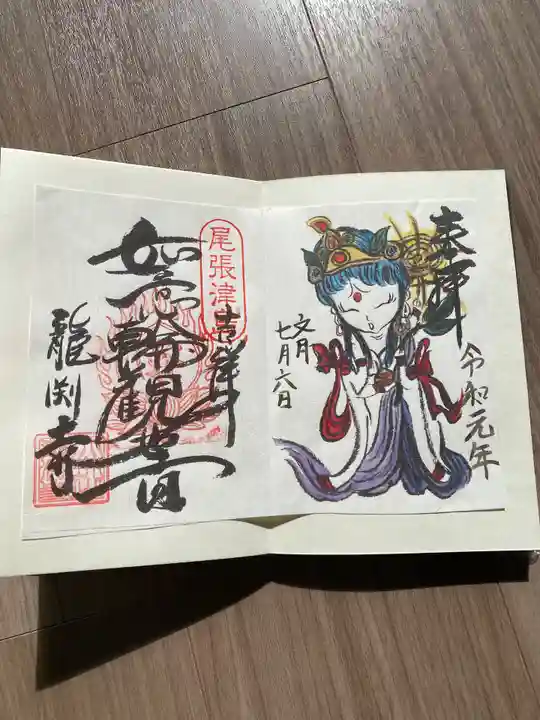 奉拝
令和元年
文月
七月六日
尾張津
吉祥
如意輪観世音
龍渕寺